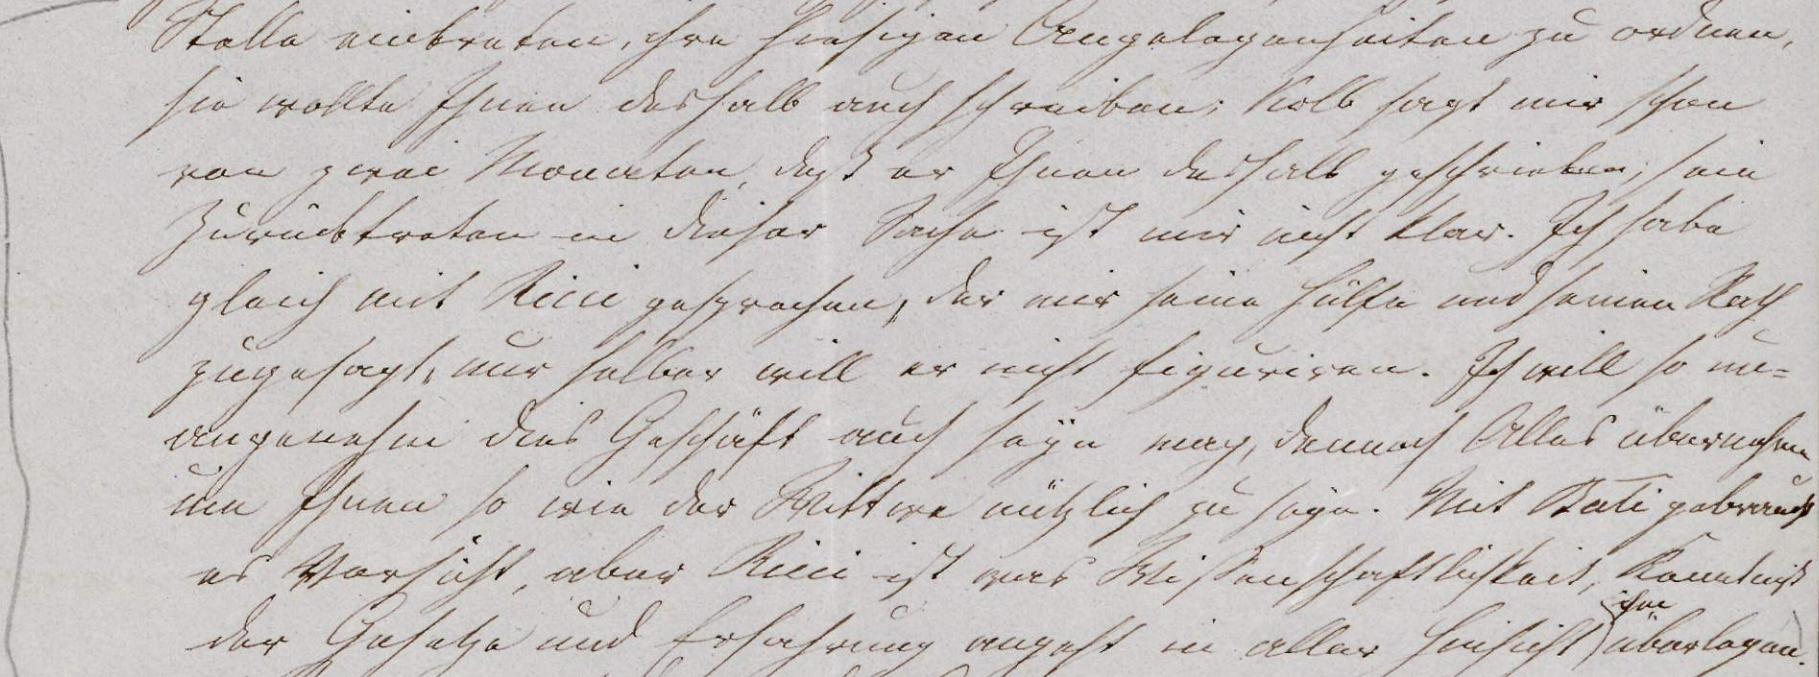 Stelle eintreten, ihre hiesigen Angelegenheiten zu ordnen,
sie wollte Ihnen deshalb auch schreiben; Kolb sagt mir schon
von zwei Monaten, daß er Ihnen deshalb geschrieben; sein
Zurücktreten in dieser Sache ist mir nicht klar. Ich habe
gleich mit Ricci gesprochen, der mir seine Hülfe und seinen Rath
zugesagt, nur selber will er nicht figuriren. Ich will so un=
angenehm dies Geschäft auch seyn mag, dennoch Alles übernehmen
um Ihnen so wie der Wittwe nützlich zu seyn. Mit Kati gebraucht
es Vorsicht, aber Ricci ist was Wissenschaftlichkeit, Kenntniß
der Gesetze und Erfahrung angeht in aller Hinsicht ihm überlegen.